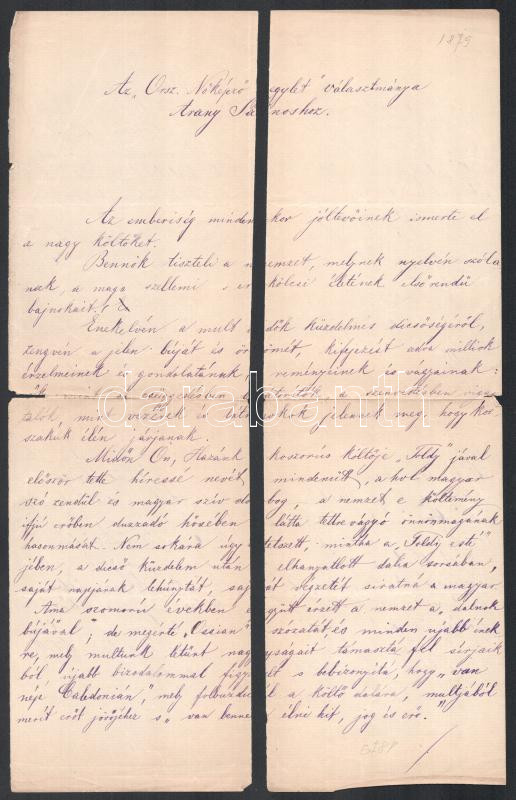 1879
Az „Orsz. Nőképző egylet” választmánya
Arany Jánoshoz.
Az emberiség mindenkor jóltevőinek ismerte el
a nagy költőket.
Bennök tiszteli a nemzet, melynek nyelvén szóla
nak, a maga szellemi s erkölcsi életének elsőrendű
bajnokait.
Énekelvén a mult idők küzdelmes dicsőségéről,
zengvén a jelen búját és örömét, kifejezést adva milliók
érzelmeinek és gondolatának reményeinek és vágyainak:
a csüggedésben bátorítók, a szenvedésben viga
talók, mint vezérek és látnokok jelennek meg, hogy kor
szakuk élén járjanak.
Midőn Ön, Hazánk koszorús költője „Toldy”jával
először tette híressé nevét mindenütt, a hol magyar
szó zendül és magyar szív dobog, a nemzet e költemény
ifjú erőben duzzadó hősében látta tettre vágyó önönmagának
hasonmását. Nem sokára úgy tetszett, mintha a „Toldi esté”
jében, a dicső küzdelem után elhanyatlott dalia sorsában,
saját napjának letüntét, saját végzetét siratná a magyar.
Ama szomorú években együtt érzett a nemzet a „dalnok
bújával”; de megérté „Ossian” szózatát és minden újabb ének
re, mely multunk letünt nagyságait támasztá fel sírjaik
ból, újabb bizodalommal figyelt s bebizonyítá, hogy „van
népe Caledonián”, mely a költő dalára, multjából
merít erőt jövőjéhez s „van benne élni hit, jog és erő.”
darabanth